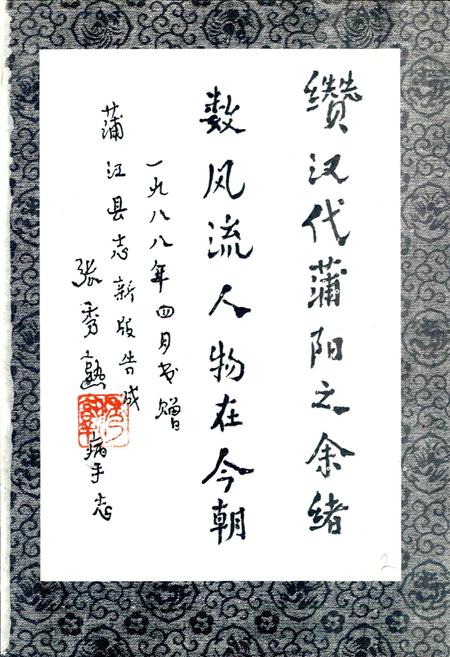 缵汉代蒲阳之余绪
数风流人物在今朝
一九八八年四月书赠
蒲江县志新版告成
张秀熟
病手志
2